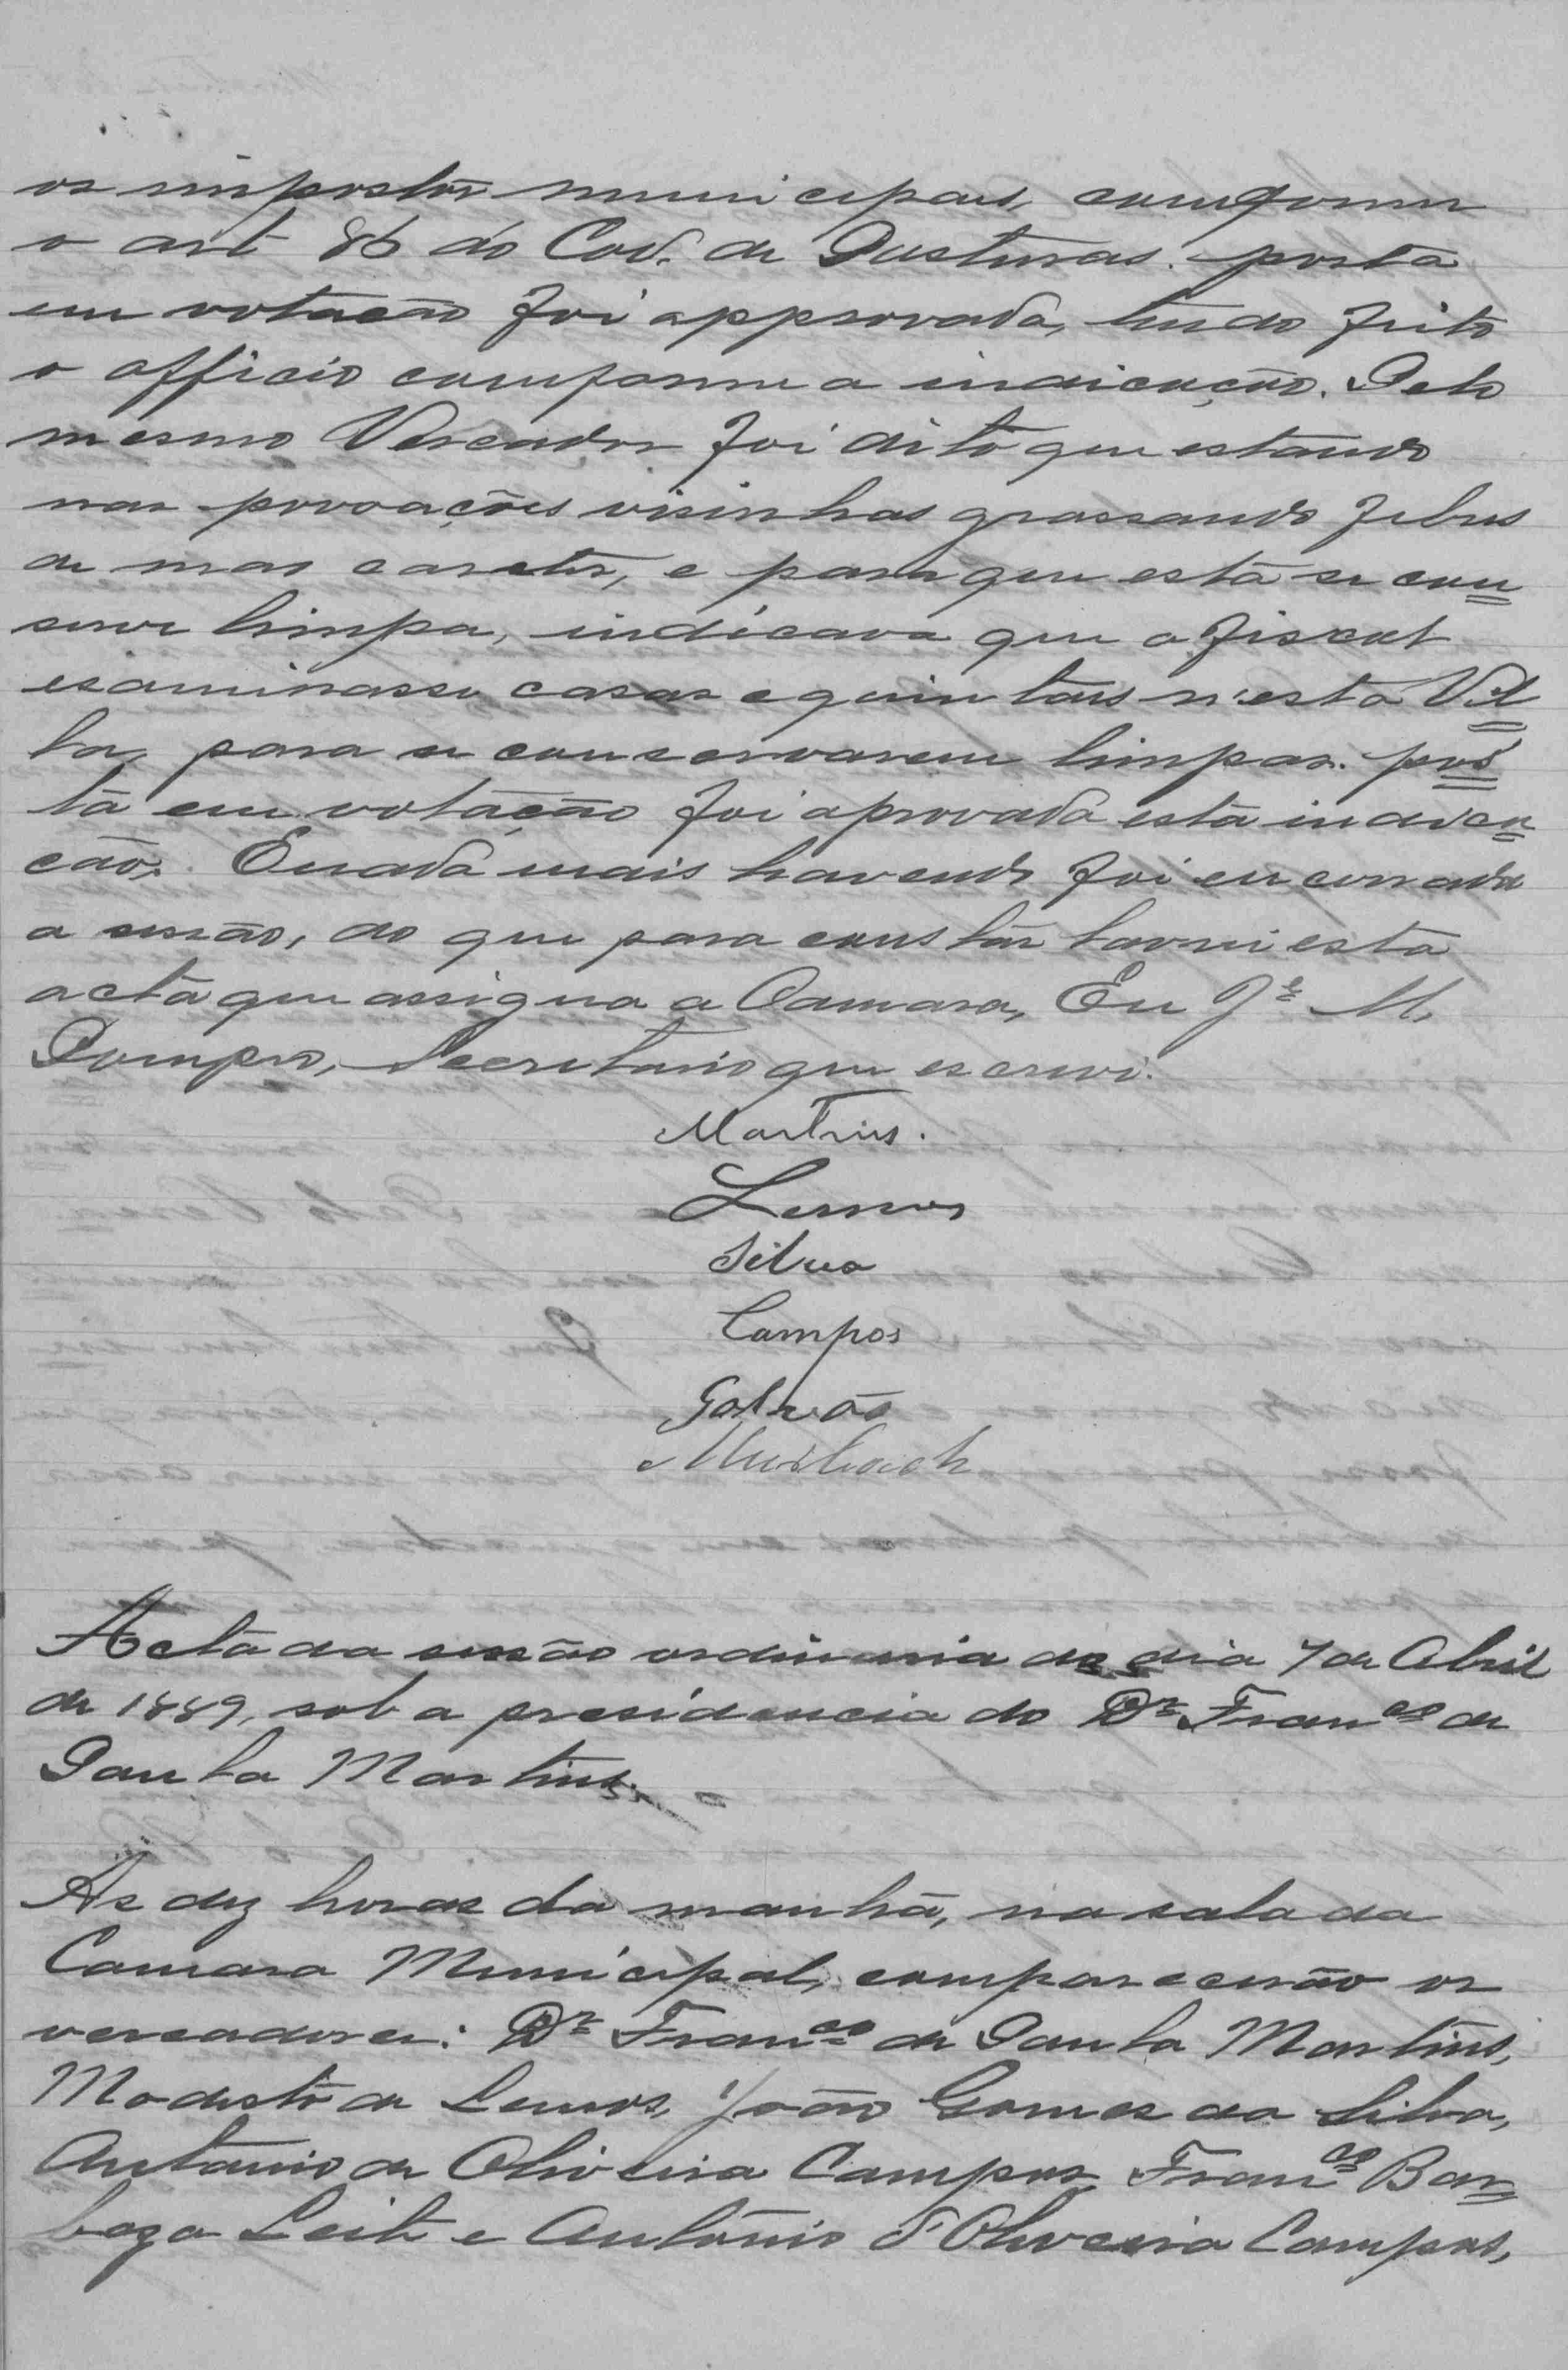 os impostos municipaes, comforme
o art 86 do Cod. de Posturas. posta
em votação foi approvada, tendo feito
o officio comforme a indicação. Pelo
mesmo Vereador foi dito que estando
nas povoações visinhas grassando febres
de mao caracter, e para que está se con
serve limpa, indicava que o fiscal
examinasse casas e quintaes n'esta Vil
la, para se conservarem limpas. pos
ta em votação foi aprovada esta indica
ção. E nada mais havendo foi encerrada
a sessão, do que para constar lavrei esta
acta que assigna a Camara, Eu Jº M.
Pompeo, Secretario que escrevi.
Martins.
Lemos
Silva
Campos
Galvão
Acta da sessão ordinaria do dia 7 de Abril
de 1889, sob a presidencia do Dr Franco de
Paula Martins.
As dez horas da manhã, na sala da
Camara Municipal, comparecerão os
vereadores: Dr Franco de Paula Martins,
Modesto de Lemos, João Gomes da Silva,
Antonio de Oliveira Campos, Franco Bar
boza Leite e Antonio d'Oliveira Campos,